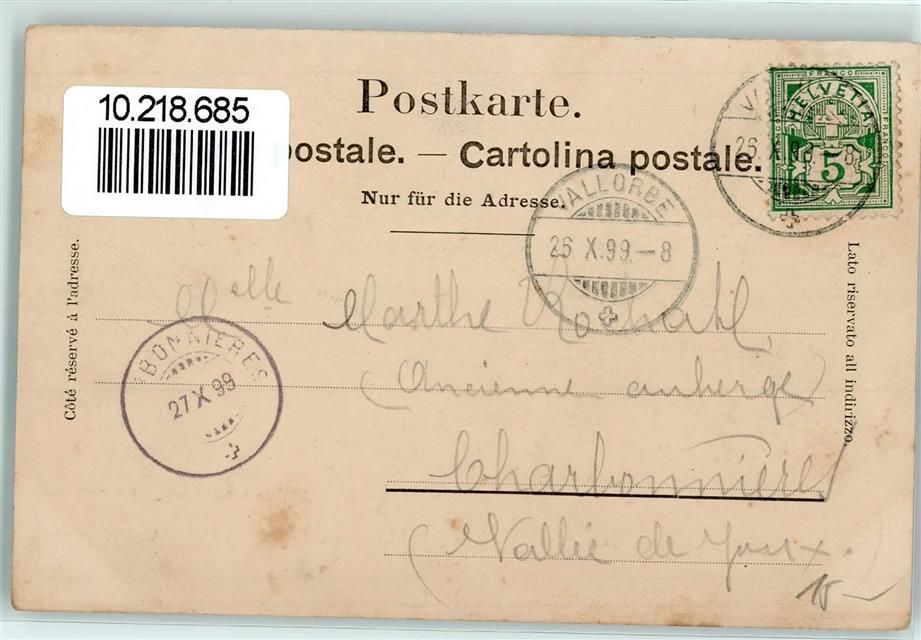 10.218.685
Postkarte.
postale. — Cartolina postale.
Nur für die Adresse.
FRANCO
HELVETIA
FRANCO
5
26 X 99 - 8
VALLORBE
26 X 99 – 8
Côté réservé à l'adresse.
Lato riservato all indirizzo.
Melle Marthe Rochat,
BONNIERES
27 X 99
(Ancienne auberge)
Charbonnières
(Vallée de Joux.)